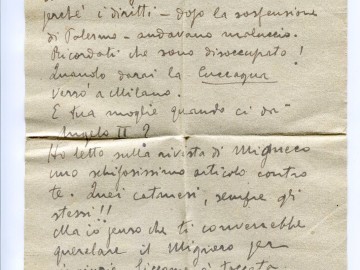 perché i diritti – dopo la sospensione
di Palermo – andavano maluccio.
Ricordati che sono disoccupato!
Quando darai la Cuccagna
verrò a Milano.
E tua moglie quando ci dà
Angelo II?
Ho letto sulla rivista di Migneco
uno schifosissimo articolo contro
te. Quei catanesi, sempre gli
stessi!!
Ma io penso che ti converrebbe
querelare il Migneco per
ingiurie. Siccome è toccata